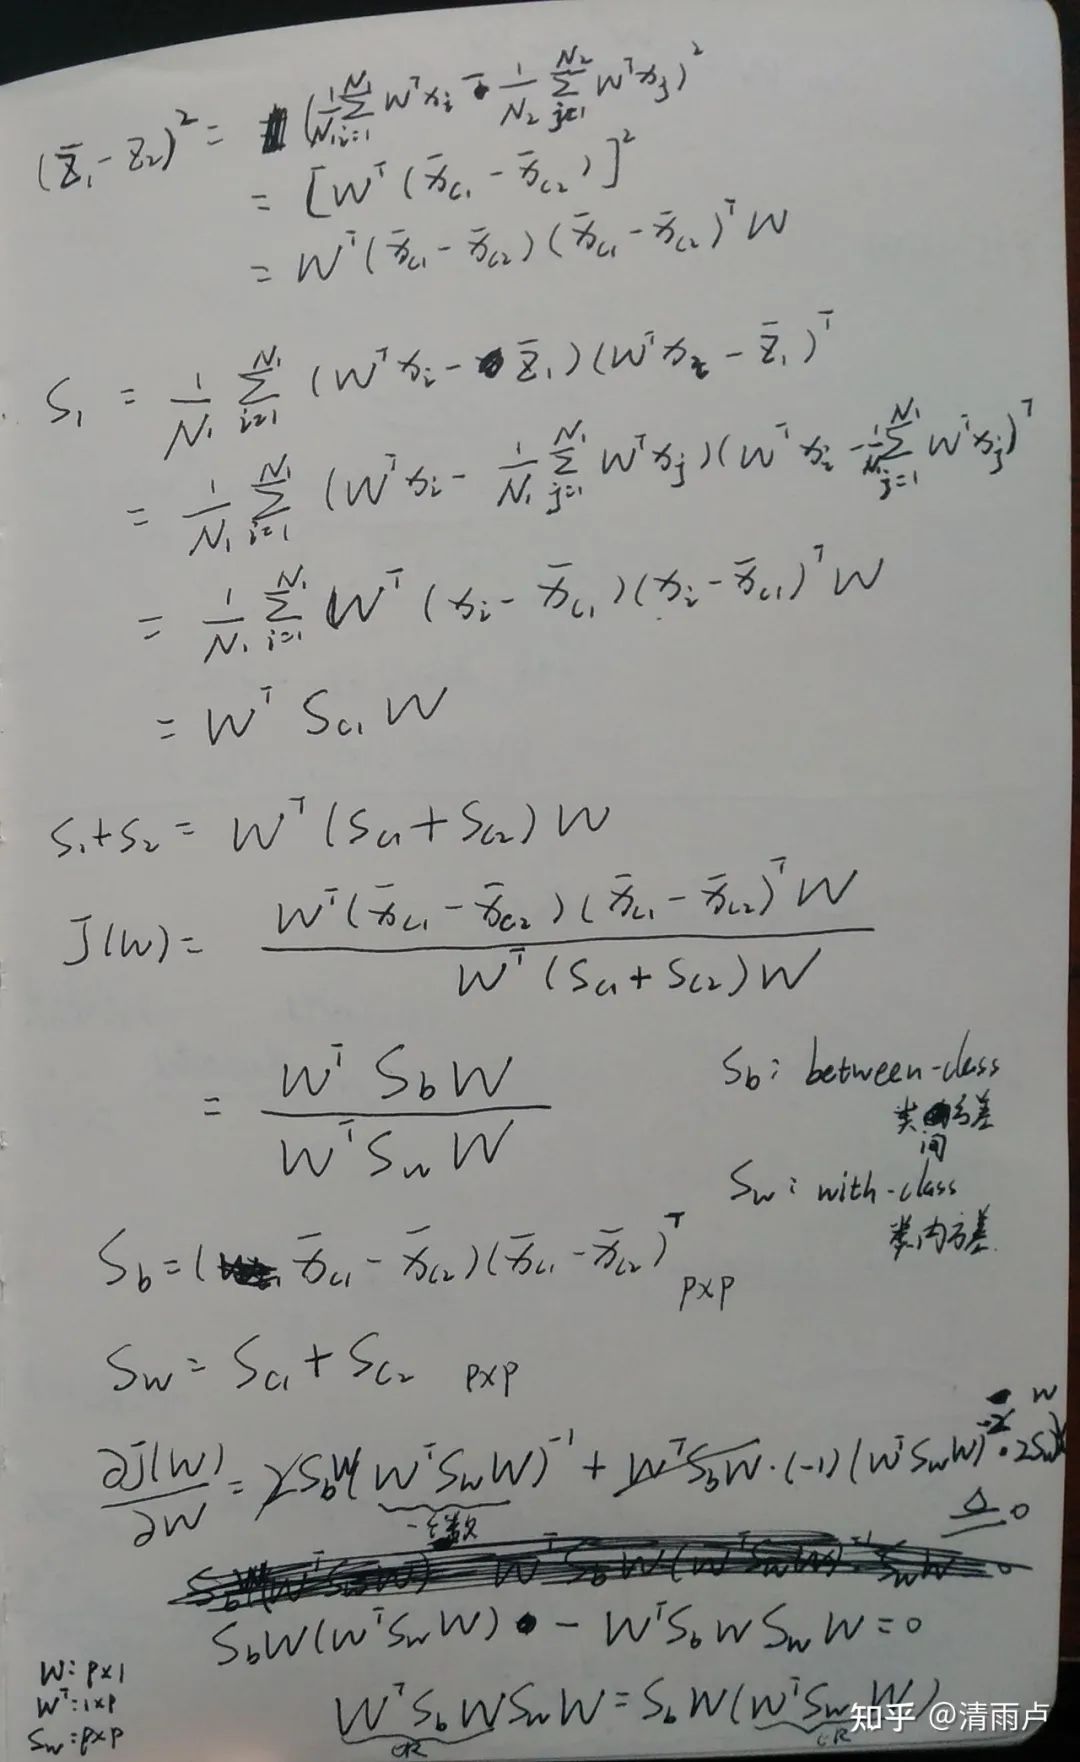 (z̄₁ - z₂)² = (1/N₁ Σ_{i=1}^{N₁} Wᵀxᵢ - 1/N₂ Σ_{j=1}^{N₂} Wᵀxⱼ)²
= [Wᵀ(x̄_{C1} - x̄_{C2})]²
= Wᵀ(x̄_{C1} - x̄_{C2})(x̄_{C1} - x̄_{C2})ᵀW
S₁ = 1/N₁ Σ_{i=1}^{N₁} (Wᵀxᵢ - z̄₁)(Wᵀxᵢ - z̄₁)ᵀ
= 1/N₁ Σ_{i=1}^{N₁} (Wᵀxᵢ - 1/N₁ Σ_{j=1}^{N₁} Wᵀxⱼ)(Wᵀxᵢ - 1/N₁ Σ_{j=1}^{N₁} Wᵀxⱼ)ᵀ
= 1/N₁ Σ_{i=1}^{N₁} Wᵀ(xᵢ - x̄_{C1})(xᵢ - x̄_{C1})ᵀW
= Wᵀ S_{C1} W
S₁+S₂ = Wᵀ(S_{C1} + S_{C2})W
J(W) = Wᵀ(x̄_{C1} - x̄_{C2})(x̄_{C1} - x̄_{C2})ᵀW / Wᵀ(S_{C1} + S_{C2})W
= Wᵀ S_b W / Wᵀ S_w W
S_b: between-class
类间方差
S_w: with-class
类内方差
S_b = (x̄_{C1} - x̄_{C2})(x̄_{C1} - x̄_{C2})ᵀ p×p
S_w = S_{C1} + S_{C2} p×p
∂J(W)/∂W = 2S_bW(WᵀS_wW)⁻¹ + WᵀS_bW·(-1)(WᵀS_wW)⁻²·2S_wW
≜ 0
S_bW(WᵀS_wW) - WᵀS_bWS_wW = 0
W: p×1
Wᵀ: 1×p
S_w: p×p
WᵀS_bWS_wW = S_bW(WᵀS_wW)
∈R ∈R
知乎 @清雨卢